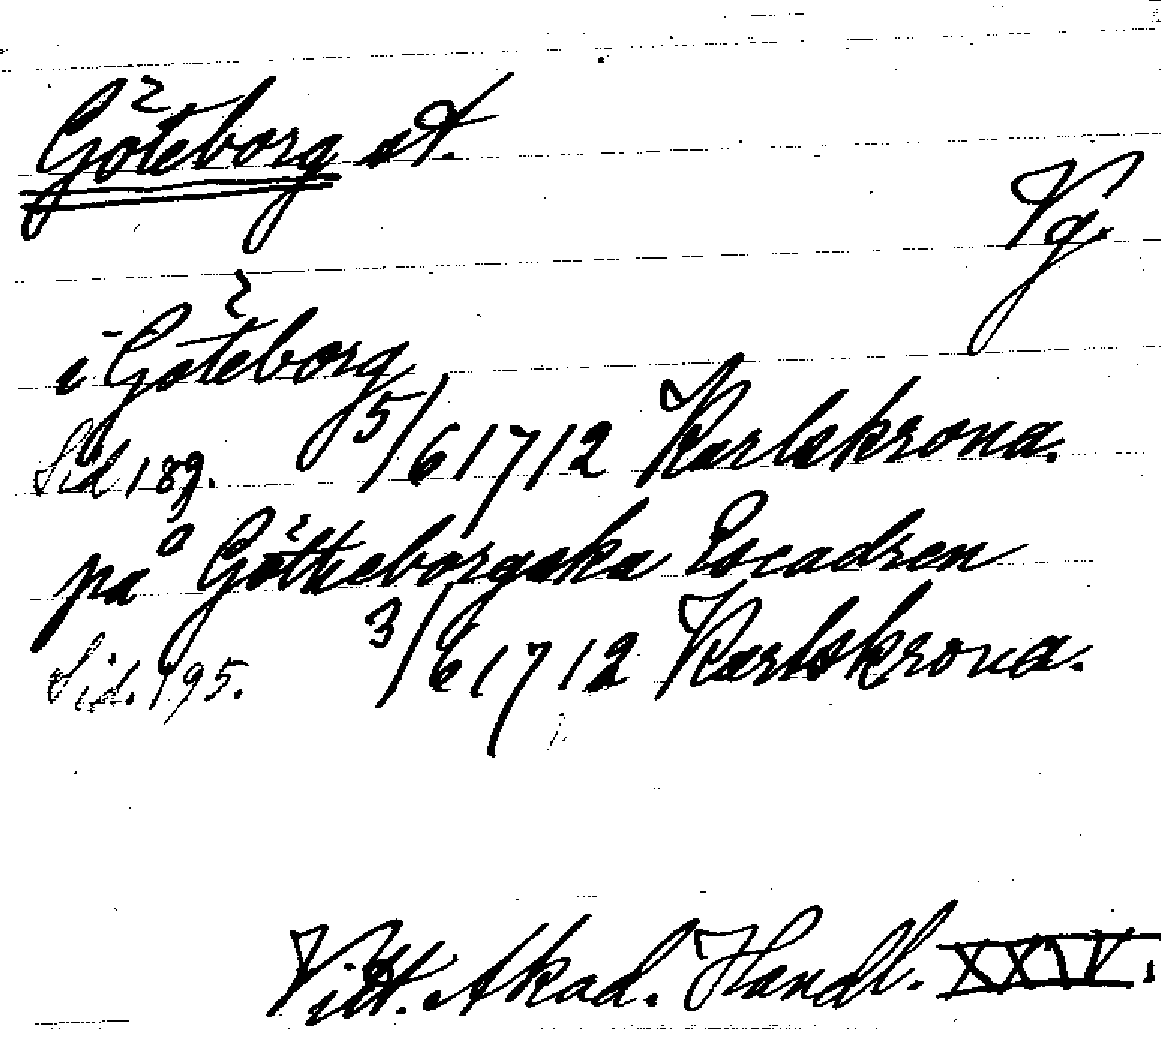 Göteborg st.
Vg.
i Göteborg
Sid 189. 5/6 1712 Karlskrona.
på Göttheborgska Escadren
Sid. 195. 3/6 1712 Karlskrona.
Vitt. Akad. Handl. XXIV.